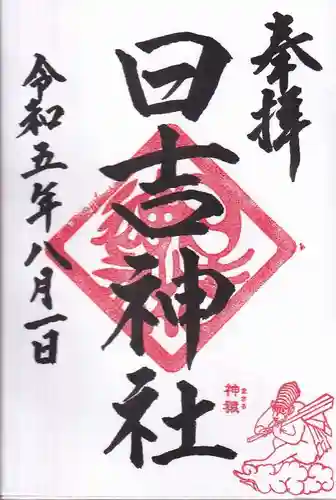 奉拝
日吉神社
令和五年八月一日
神猿
まさる